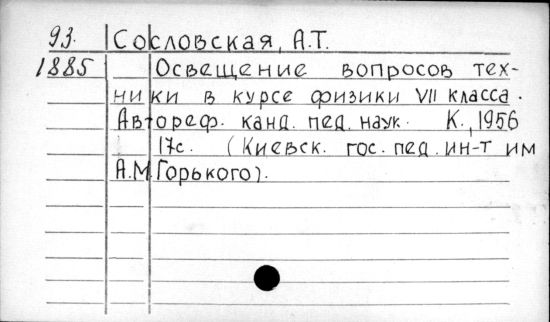 93. Сословская, А.Т.
1885 Освещение вопросов тех-
ники в курсе физики VII класса.
Автореф. канд. пед. наук. К., 1956
17с. (Киевск. гос. пед. ин-т им
А.М.Горького).